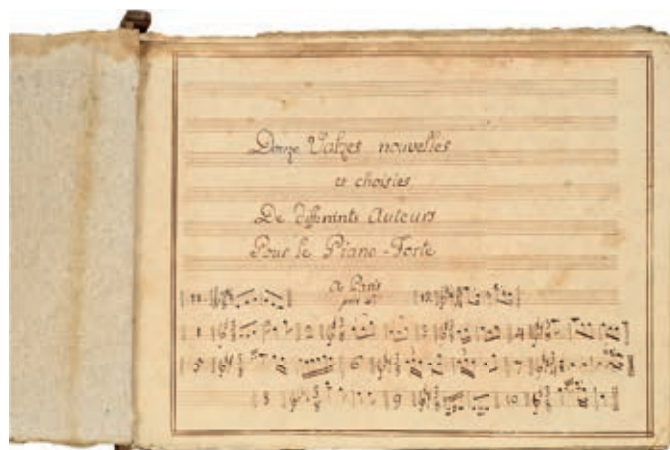 Douze Valzes nouvelles
et choisies
De differents Auteurs
Pour le Piano-Forte
a Paris
11 12
1 2 3 4
5 6 7
8 9 10